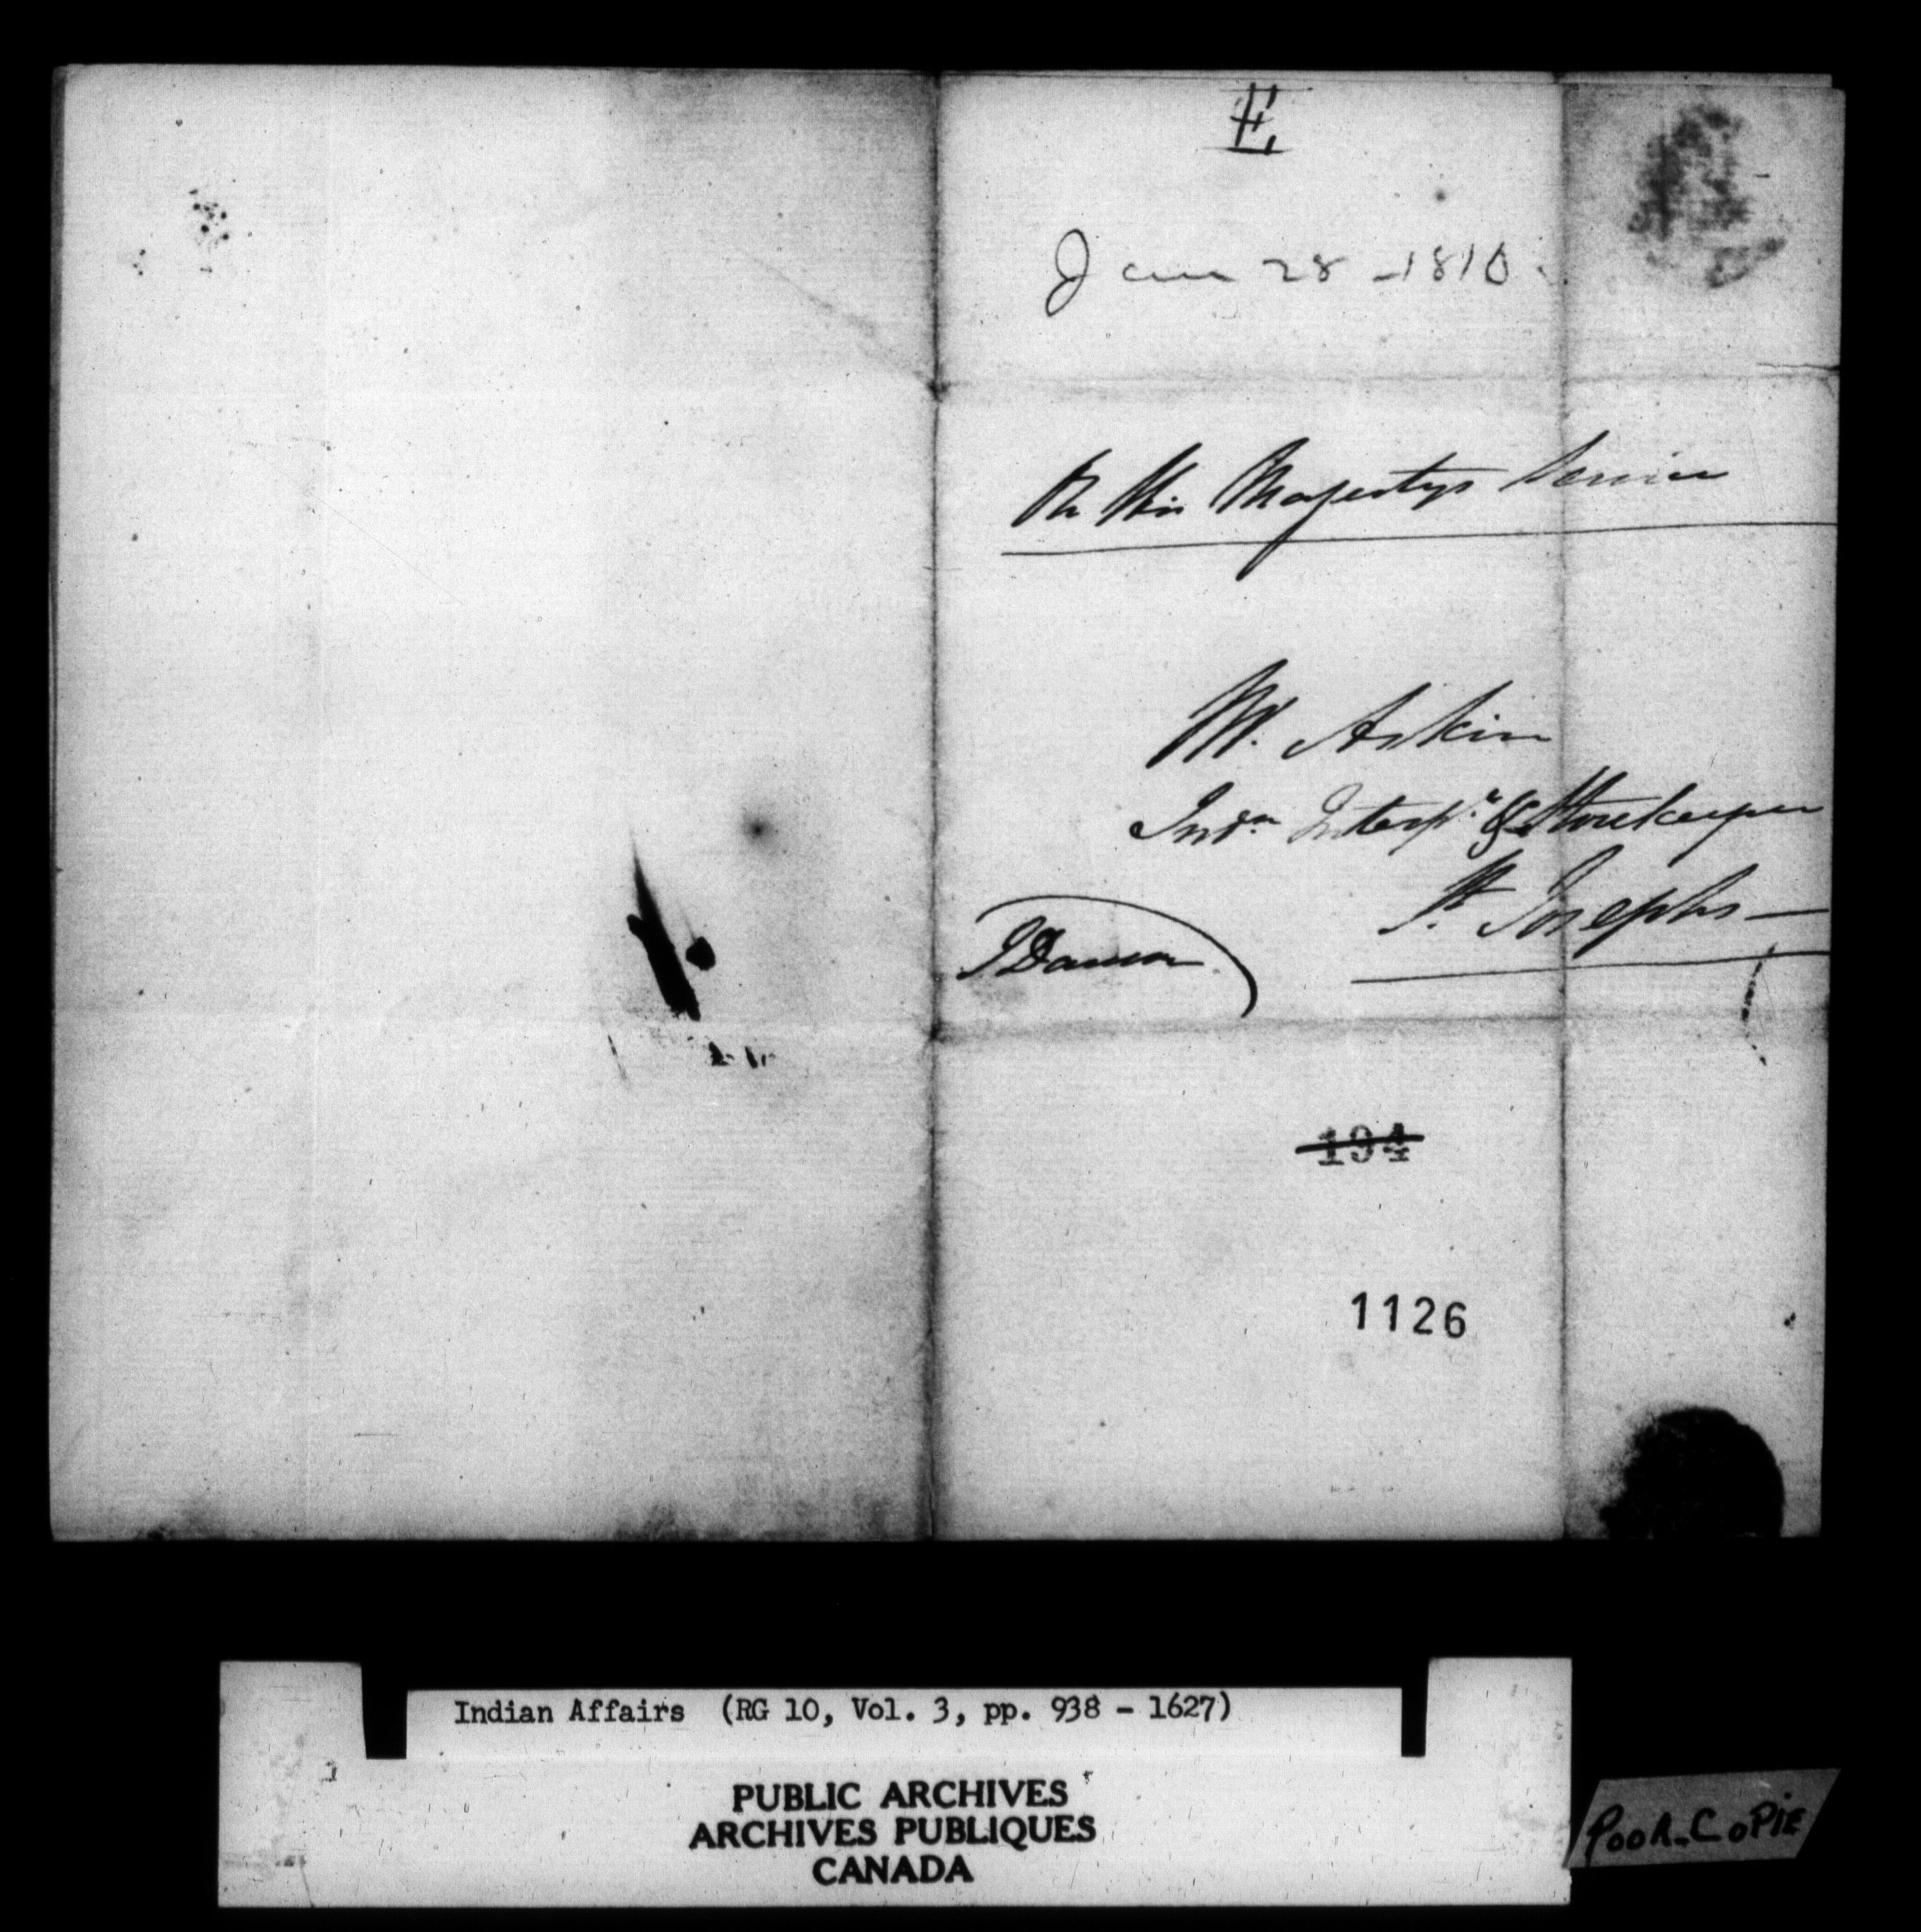 E
Jan 28 - 1810
On His Majestys Service
Mr. Askin
Indn. Interpr. & Storekeeper
St. Josephs —
194
1126
Indian Affairs (RG 10, Vol. 3, pp. 938 - 1627)
PUBLIC ARCHIVES
ARCHIVES PUBLIQUES
CANADA
POOR_COPIE